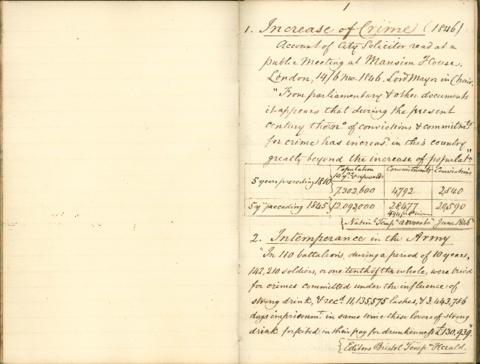 1
1. Increase of Crime (1846)
Account of City Solicitor read at a
public Meeting at Mansion House,
London, 1846. Lord Mayor in Chair.
"From parliamentary & other documents
it appears that during the present
century the no of convictions & commitmts
for crime has increasd in this country
greatly beyond the increase of populatn"
Population Commitments Convictions
10 yrs & upwards
5 years preceding 1810 7,302,600 4792 2,540
5 yrs preceding 1845 12,092,000 28,477 20,590
{Nation'l Temp'ce June 1846
2. Intemperance in the Army
In 110 battalions, during a period of 10 years,
142,210 soldiers, or one tenth of the whole, were tried
for crimes committed under the influence of
strong drink, & recd 11,135,575 lashes, & 3,443,756
days imprisonmt in same time these lovers of strong
drink forfeited in their pay for drunkenness £130,939"
{Editors Bristol Temp'ce Herald.